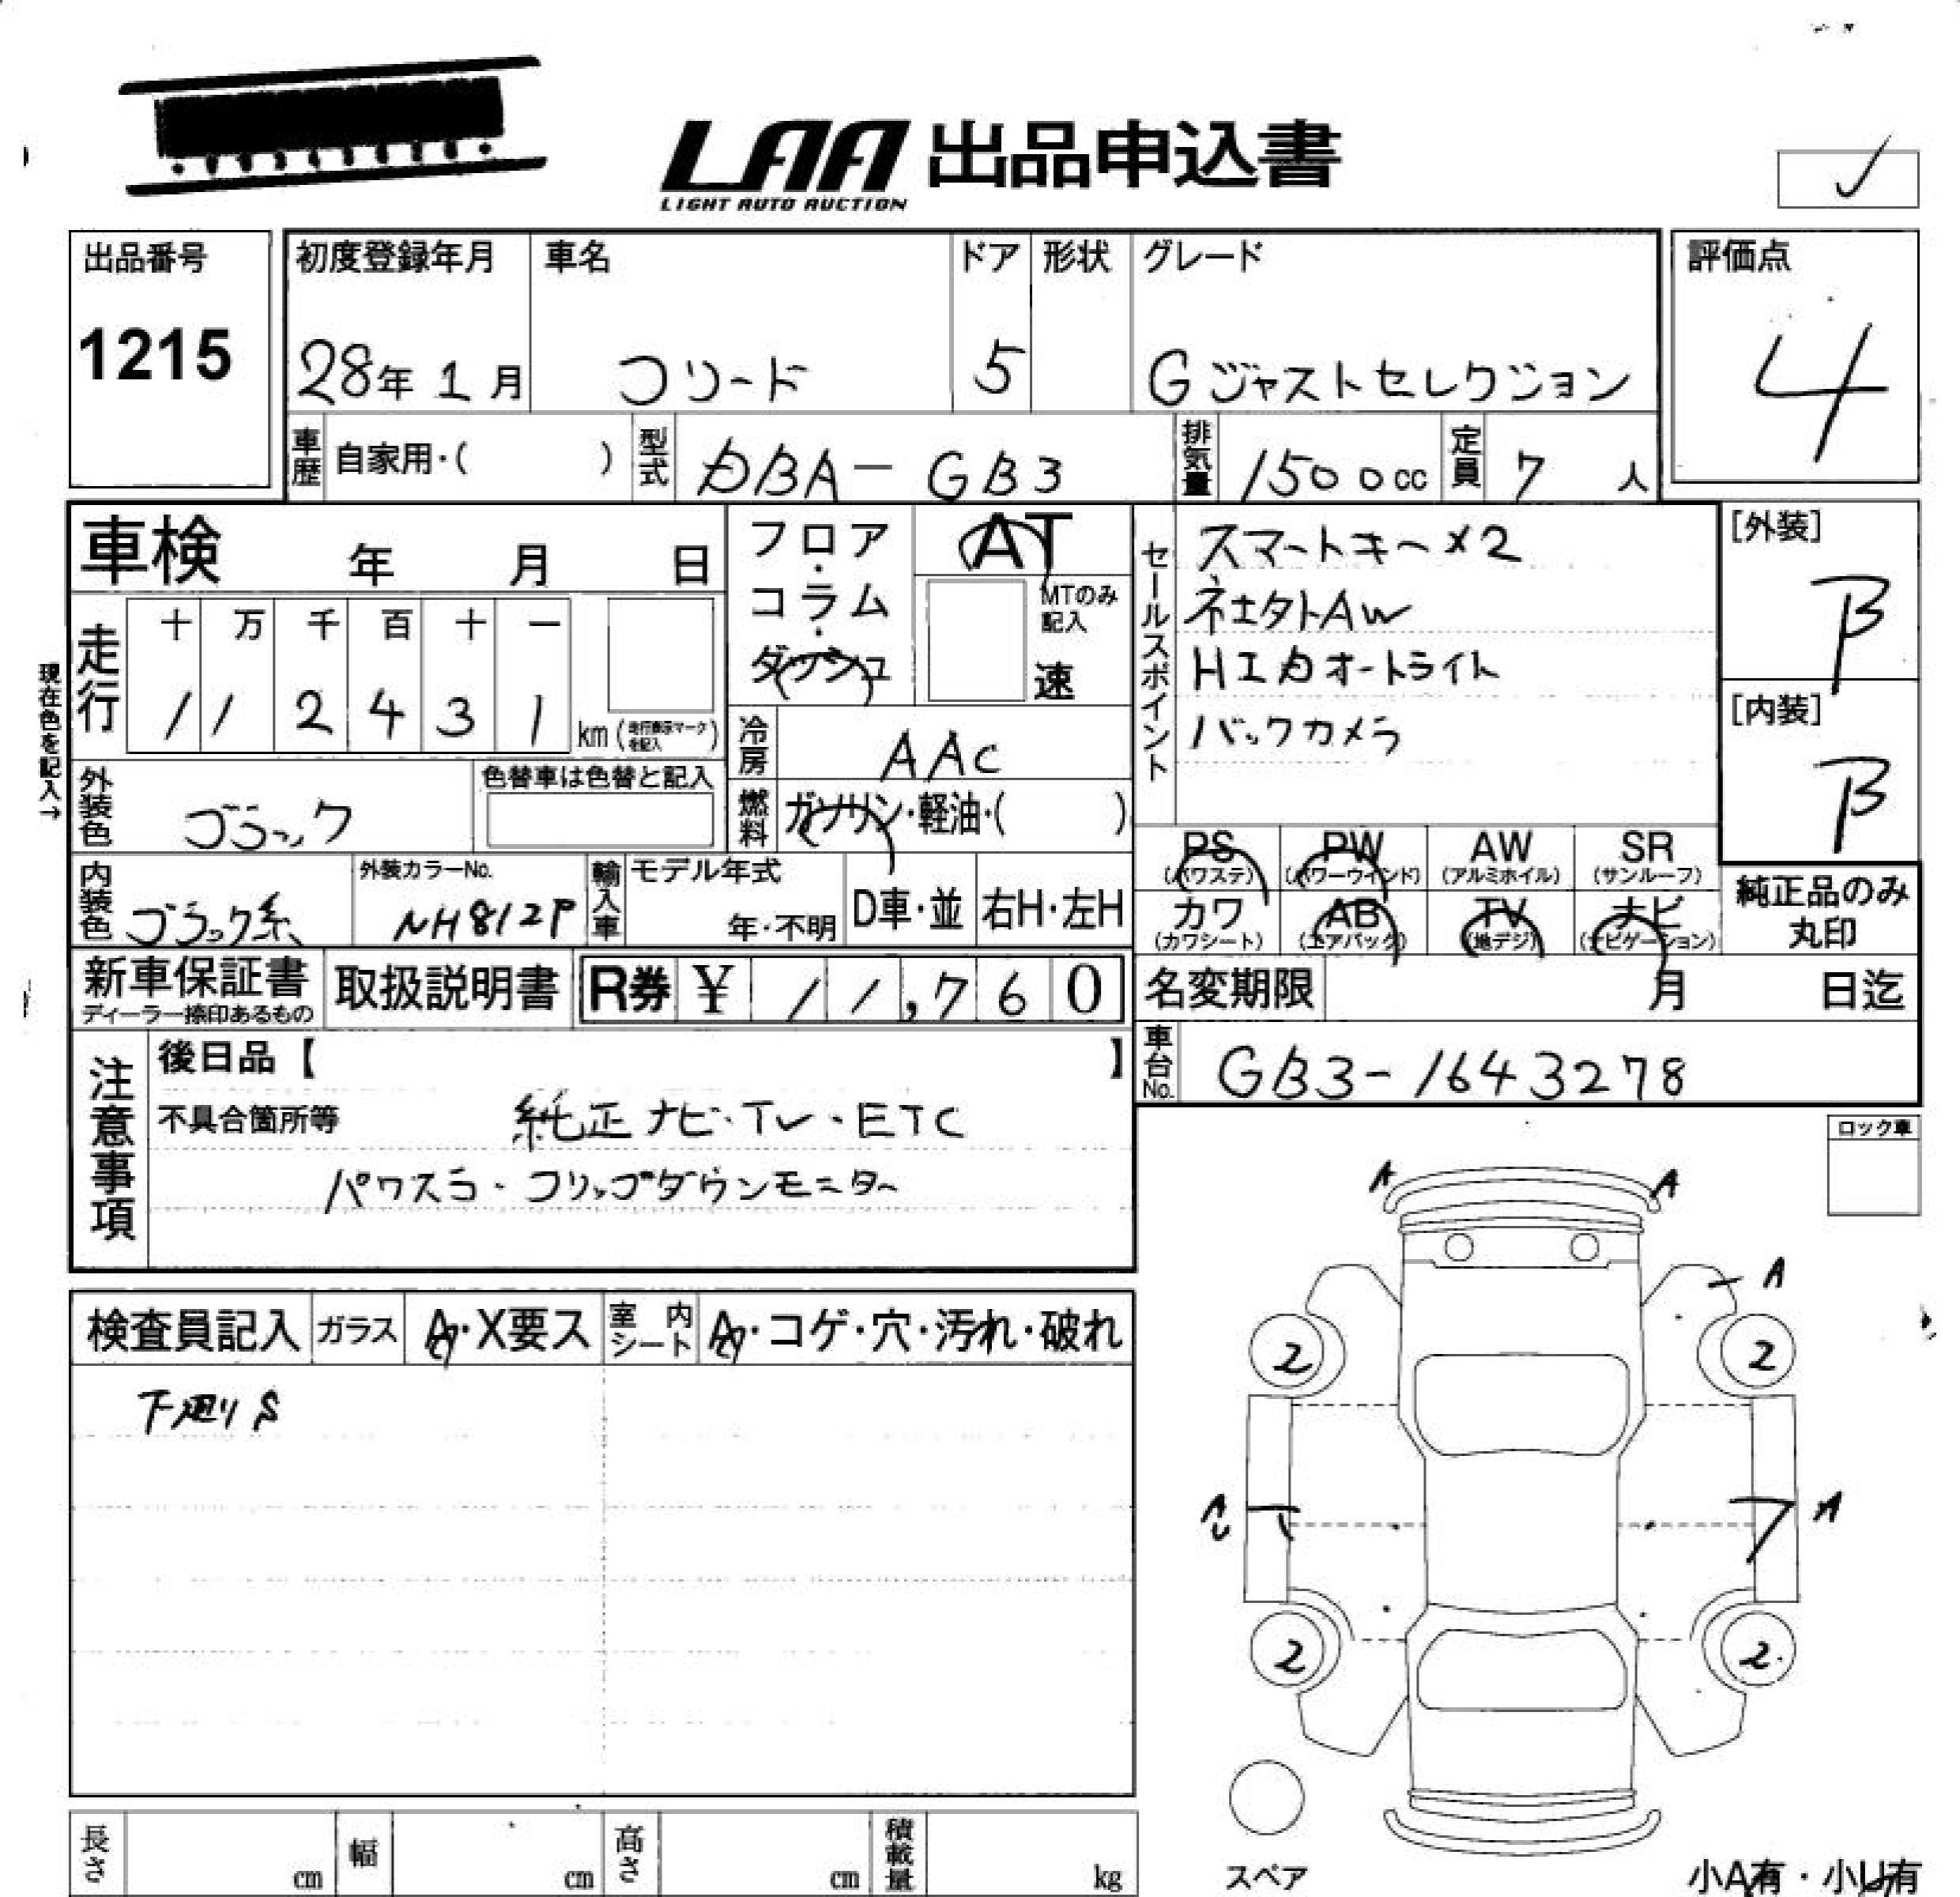 LAA 出品申込書
LIGHT AUTO AUCTION
出品番号
1215
初度登録年月
28年 1月
車名
フリード
ドア
5
形状
グレード
G ジャストセレクション
評価点
4
車歴 自家用・( )
型式 DBA－GB3
排気量 1500cc
定員 7 人
車検 年 月 日
フロア・コラム・ダッシュ
AT
MTのみ記入
速
走行
十 万 千 百 十 一
1 1 2 4 3 1 km (走行表示マークを記入)
現在色を記入→
冷房 AAC
燃料 ガソリン・軽油・( )
外装色 ブラック
色替車は色替と記入
内装色 ブラック系
外装カラーNo.
NH812P
輸入車
モデル年式
年・不明
D車・並
右H・左H
セールスポイント
スマートキー×2
HID オートライト
バックカメラ
[外装]
B
[内装]
B
PS (パワステ)
PW (パワーウインド)
AW (アルミホイル)
SR (サンルーフ)
カワ (カワシート)
AB (エアバック)
TV (地デジ)
ナビ (ナビゲーション)
純正品のみ丸印
新車保証書
ディーラー捺印あるもの
取扱説明書
R券 ¥ 11,760
名変期限 月 日迄
車台No. GB3-1643278
注意事項
後日品【 】
不具合箇所等 純正ナビ・TV・ETC
パワスラ・フリップダウンモニター
ロック車
検査員記入
ガラス
A・X要ス
室内シート
A・コゲ・穴・汚れ・破れ
下廻りS
A
A
A
2
2
A
U
A
2
2
スペア
小A有・小U有
長さ cm
幅 cm
高さ cm
積載量 kg